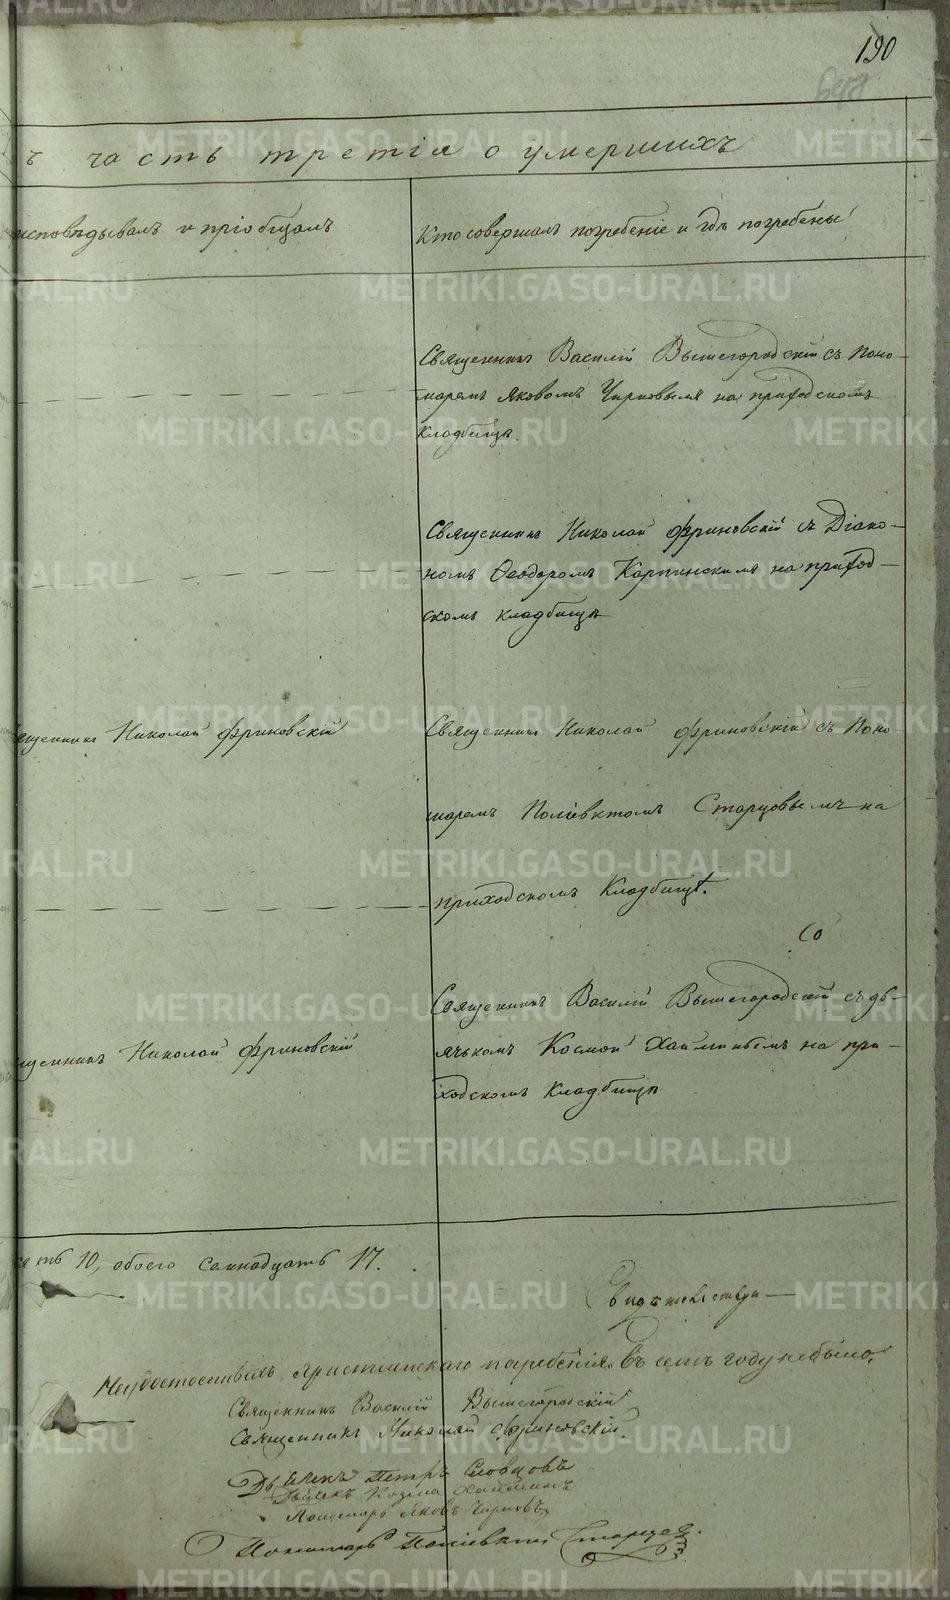 190
ъ часть третія о умершихъ
исповѣдывалъ и пріобщалъ
Кто совершалъ погребеніе и гдѣ погребены
Священникъ Василій Вышегородскій съ Поно-
маремъ Яковомъ Чирковымъ на приходскомъ
кладбищѣ.
Священникъ Николай Фриновскій съ Діако-
номъ Ѳеодоромъ Карпинскимъ на приход-
скомъ кладбищѣ
щенникъ Николай Фриновскій
Священникъ Николай Фриновскій съ Поно
маремъ Поліевктомъ Старцовымъ на
приходскомъ Кладбищѣ.
Со
щенникъ Николай Фриновскій
Священникъ Василій Вышегородскій съ дь-
ячькомъ Космой Хайминымъ на при-
ходскомъ Кладбищѣ
ть 10, обоего семнадцать 17.
Свидѣтельству
христіанскаго погребенія въ семъ году небыло.
Священникъ Василій Вышегородскій
Священникъ Николай Фриновскій
Дьячекъ Петръ Словцовъ
Дьячекъ Козма Хайминъ
Пономарь Яковъ Чирковъ
Пономарь Поліевктъ Старцовъ.
METRIKI.GASO-URAL.RU